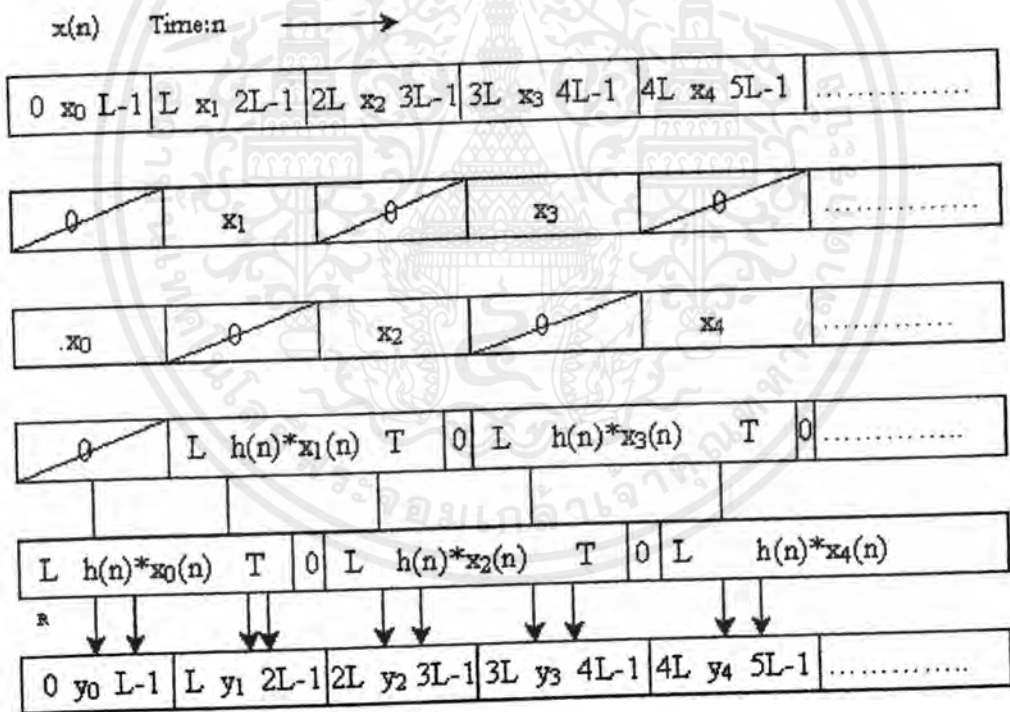 x(n) Time:n
0 x₀ L-1 L x₁ 2L-1 2L x₂ 3L-1 3L x₃ 4L-1 4L x₄ 5L-1 ...............
0 x₁ 0 x₃ 0 ................
.x₀ 0 x₂ 0 x₄ .............
0 L h(n)*x₁(n) T 0 L h(n)*x₃(n) T 0 ..............
L h(n)*x₀(n) T 0 L h(n)*x₂(n) T 0 L h(n)*x₄(n)
R
0 y₀ L-1 L y₁ 2L-1 2L y₂ 3L-1 3L y₃ 4L-1 4L y₄ 5L-1 ..............